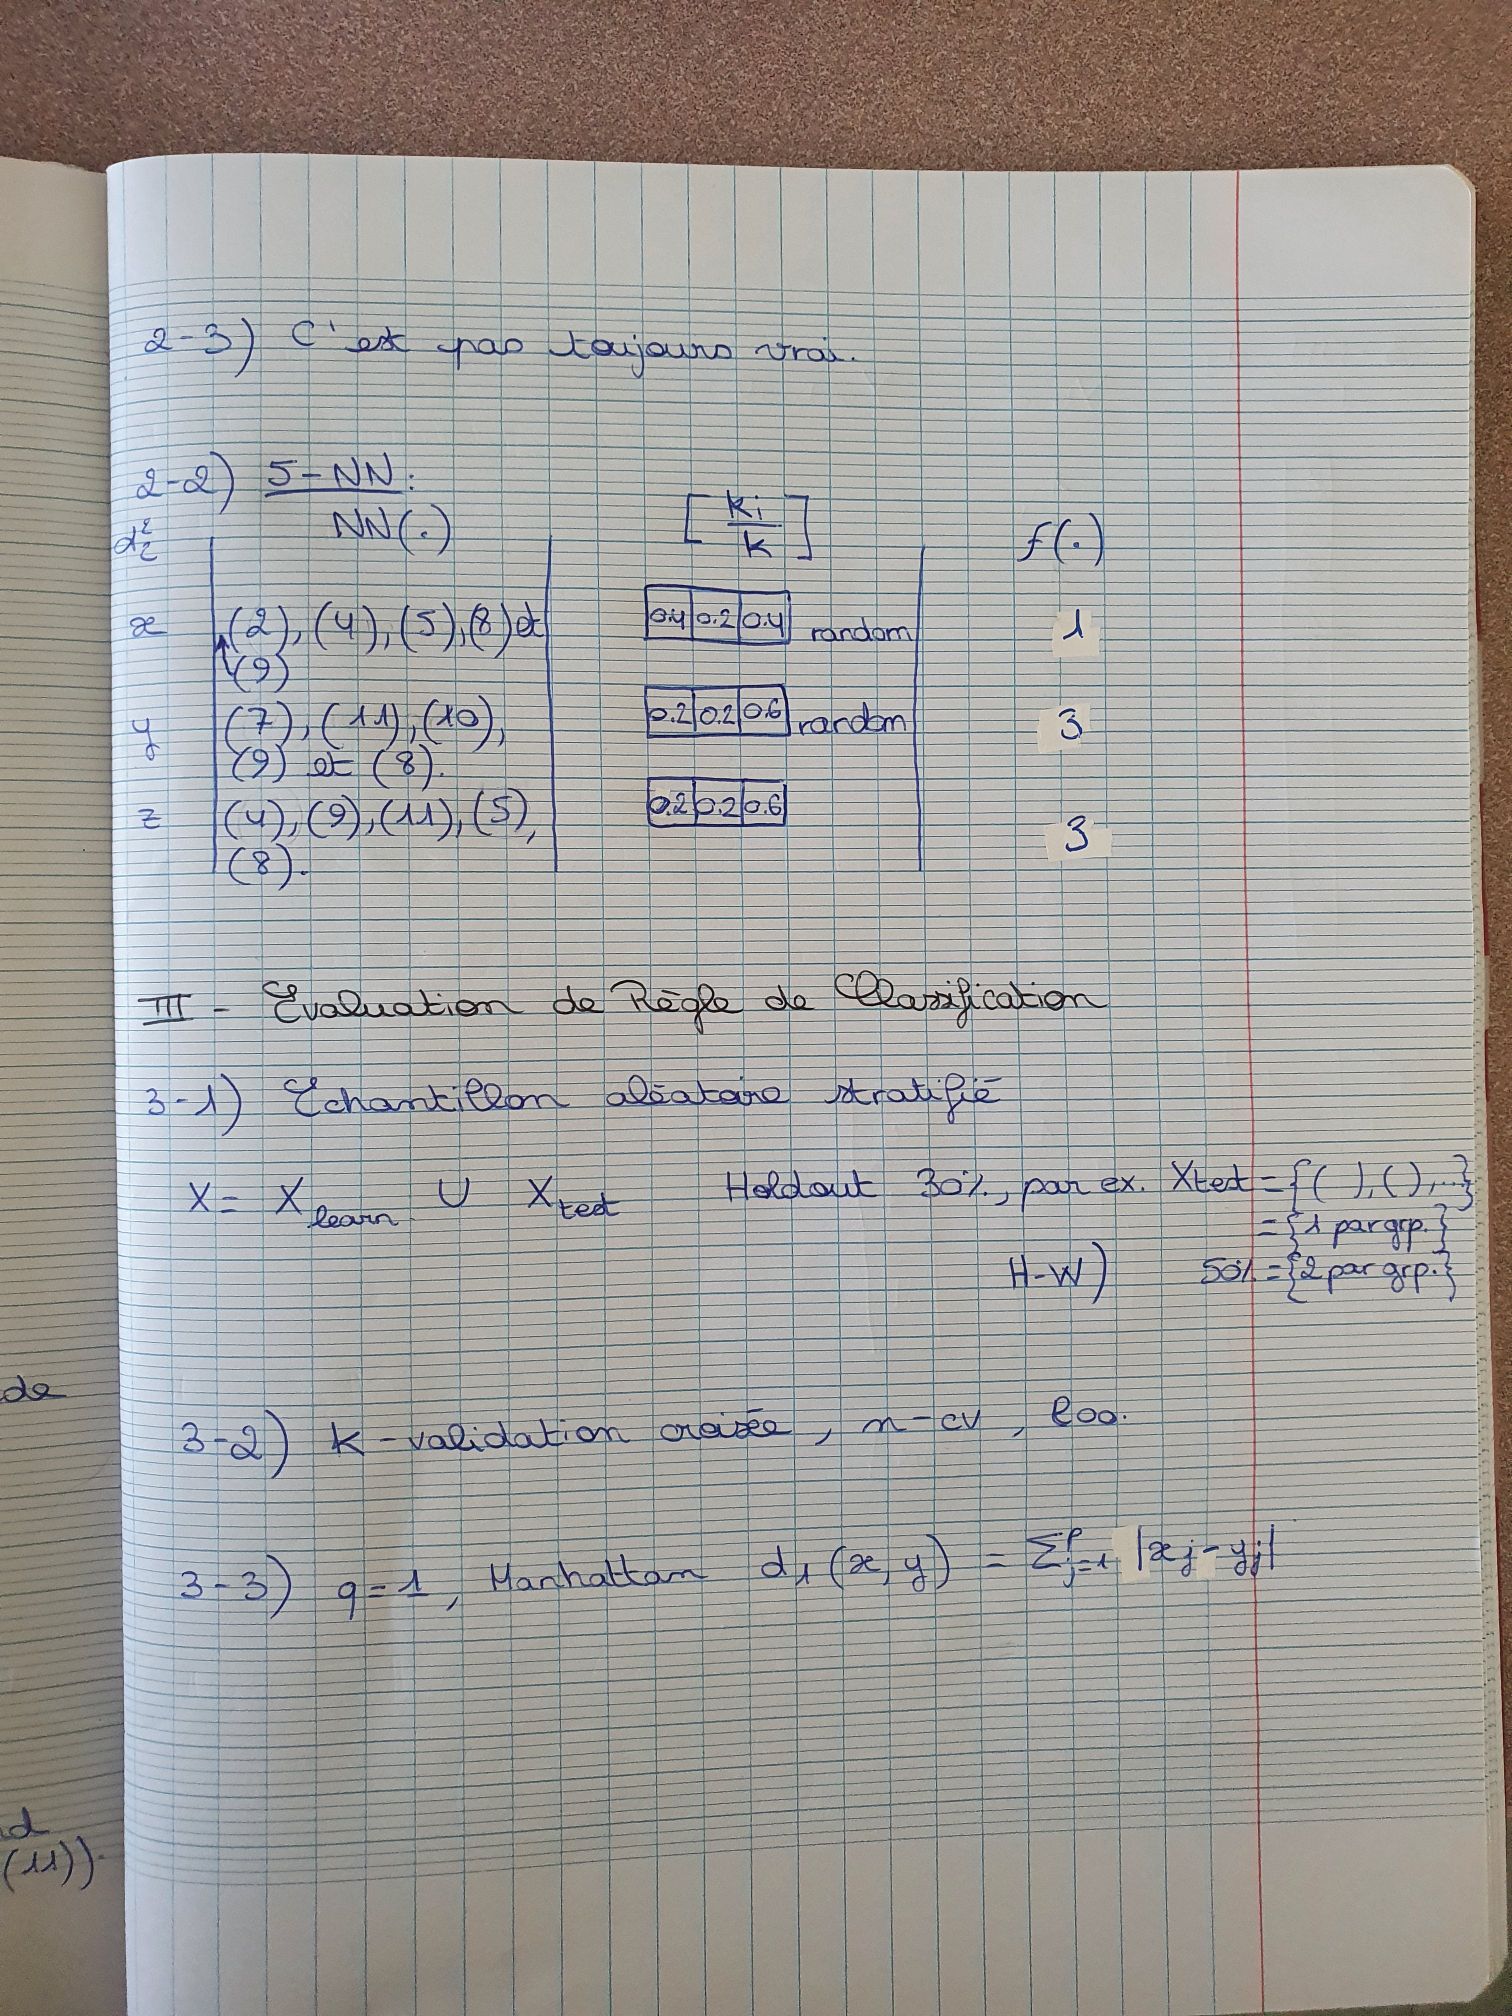 2-3) C'est pas toujours vrai.
2-2) 5-NN:
d₂² NN(.) [ki/k] f(.)
x (2), (4), (5), (8) et 0.4 0.2 0.4 random 1
(9)
y (7), (11), (10), 0.2 0.2 0.6 random 3
(9) et (8).
z (4), (9), (11), (5), 0.2 0.2 0.6 3
(8).
III - Evaluation de Règle de Classification
3-1) Echantillon aléatoire stratifié
X = X learn ∪ X test Holdout 30%, par ex. Xtest = {( ), ( ), ...}
= {1 par grp.}
H-W) 50% = {2 par grp.}
de
3-2) k-validation croisée, n-cv, loo.
3-3) q=1, Manhattan d₁(x,y) = Σ^p_{j=1} |xj - yj|
(11)).